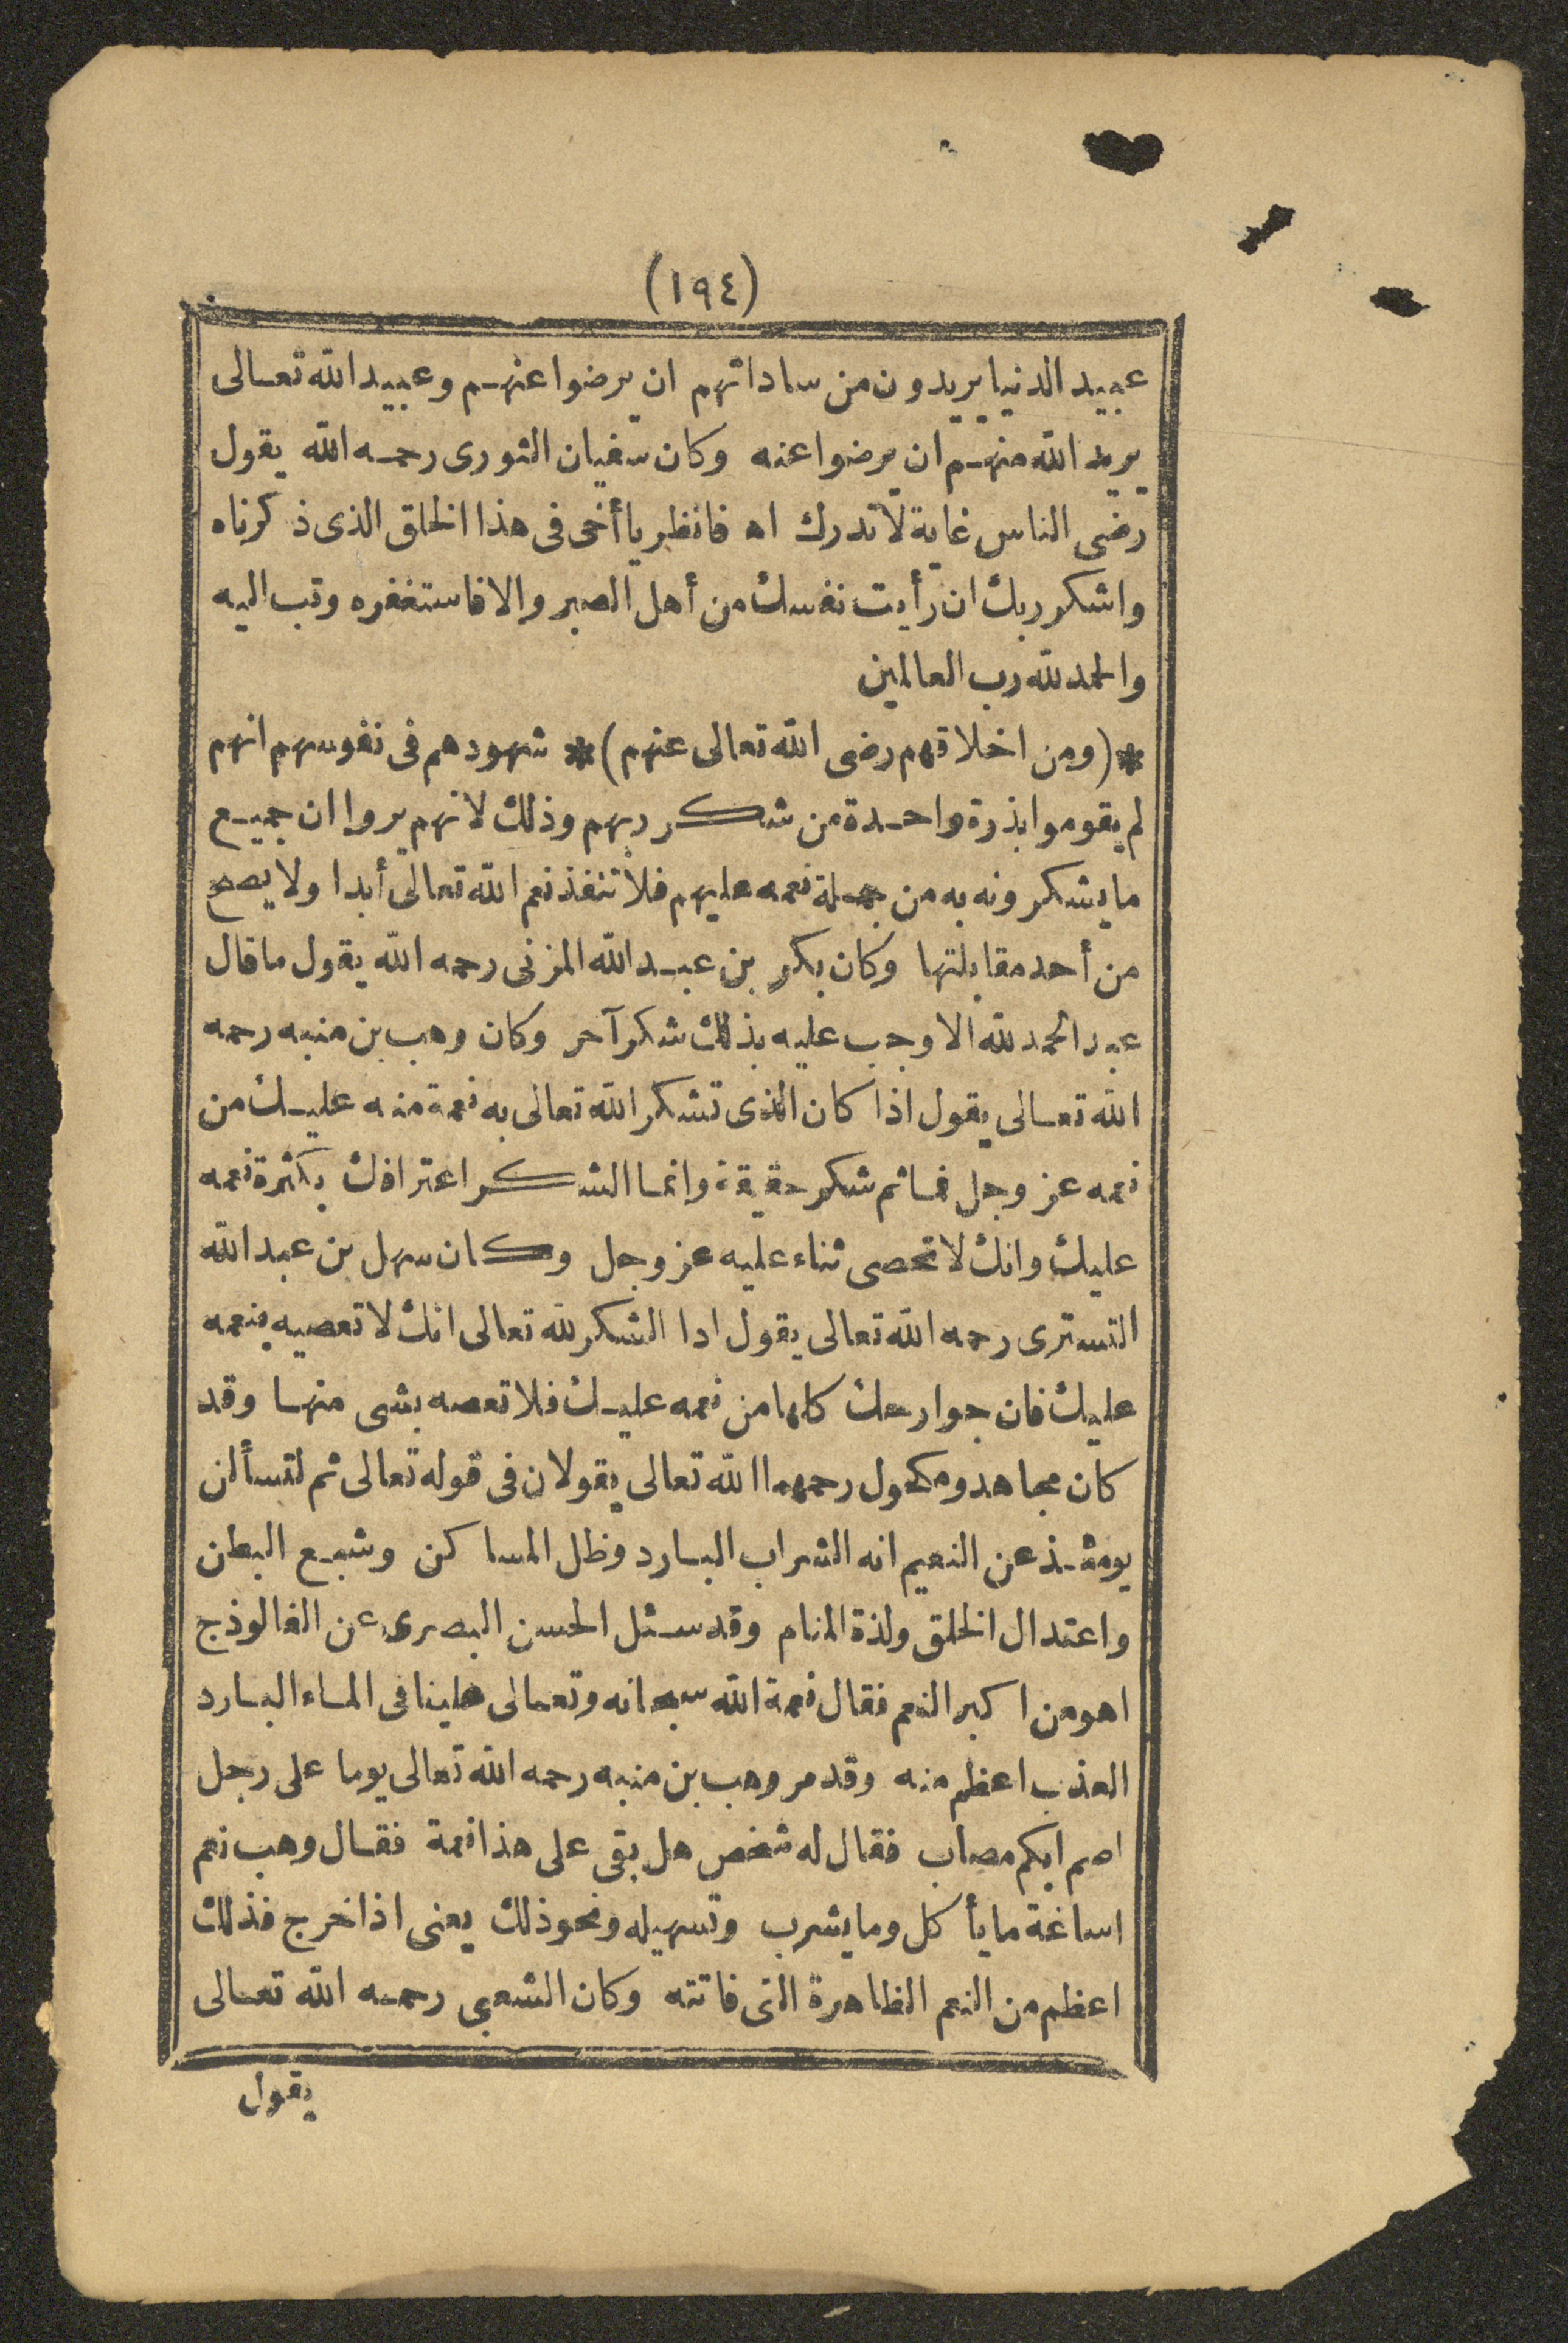 (١٩٤)
عبيد الدنيا يريدون من ساداتهم ان يرضوا عنهم وعبيد الله تعالى
يريد الله منهم ان يرضوا عنه وكان سفيان الثورى رحمه الله يقول
رضى الناس غاية لا تدرك اه فانظر يا أخى فى هذا الخلق الذى ذكرناه
واشكر ربك ان رأيت نفسك من أهل الصبر والا فاستغفره وتب اليه
والحمد لله رب العالمين
*(ومن اخلاقهم رضى الله تعالى عنهم)* شهودهم فى نفوسهم انهم
لم يقوموا بذرة واحدة من شكر ربهم وذلك لانهم يروا ان جميع
ما يشكرونه به من جملة نعمه عليهم فلا تنفذ نعم الله تعالى أبدا ولا يصح
من أحد مقابلتها وكان بكر بن عبد الله المزنى رحمه الله يقول ما قال
عبد الحمد لله الا وجب عليه بذلك شكر آخر وكان وهب بن منبه رحمه
الله تعالى يقول اذا كان الذى تشكر الله تعالى به نعمة منه عليك من
نعمه عز وجل فما ثم شكر حقيقة وانما الشكر اعترافك بكثرة نعمه
عليك وانك لا تحصى ثناء عليه عز وجل وكان سهل بن عبد الله
التسترى رحمه الله تعالى يقول ادا الشكر لله تعالى انك لا تعصيه بنعمه
عليك فان جوارحك كلها من نعمه عليك فلا تعصه بشى منها وقد
كان مجاهد ومكحول رحمهما الله تعالى يقولان فى قوله تعالى ثم لتسألن
يومئذ عن النعيم انه الشراب البارد وظل المساكن وشبع البطن
واعتدال الخلق ولذة المنام وقد سئل الحسن البصرى عن الفالوذج
اهو من اكبر النعم فقال نعمة الله سبحانه وتعالى علينا فى الماء البارد
العذب اعظم منه وقد مر وهب بن منبه رحمه الله تعالى يوما على رجل
اصم ابكم مصاب فقال له شخص هل بقى على هذا نعمة فقال وهب نعم
اساغة ما يأكل وما يشرب وتسهيله ونحو ذلك يعنى اذا خرج فذلك
اعظم من النعم الظاهرة التى فاتته وكان الشعبى رحمه الله تعالى
يقول